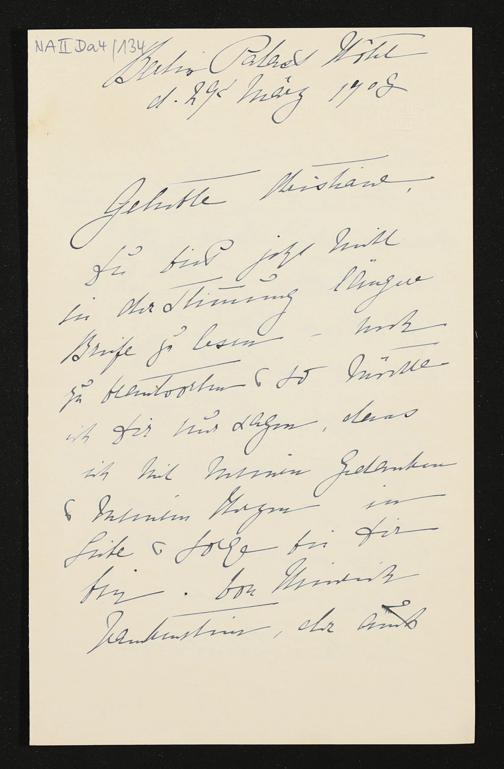 NA II Da4/134
Berlin Palast Hôtel
d. 29 März 1908
Geliebte Christiane,
Du bist jetzt nicht
in der Stimmung längere
Briefe zu lesen – noch
zu beantworten & so möchte
ich Dir nur sagen, dass
ich mit meinen Gedanken
& meinem Herzen in
Liebe & Sorge bei Dir
bin. Von Heinrich
, der auch